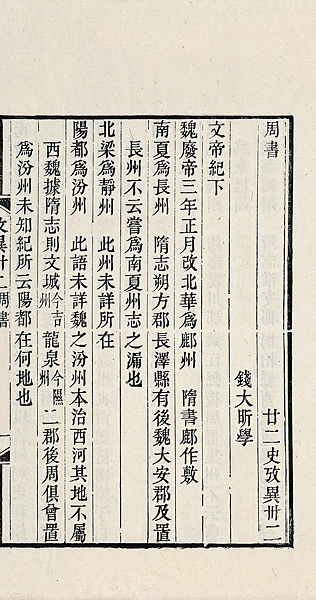 周書　廿二史攷異卅二
錢大昕學
文帝紀下
魏廢帝三年正月改北華爲鄜州　隋書鄜作敷
南夏爲長州　隋志朔方郡長澤縣有後魏大安郡及置
長州不云嘗爲南夏州志之漏也
北梁爲靜州　此州未詳所在
陽都爲汾州　此語未詳魏之汾州本治西河其地不屬
西魏據隋志則文城今吉州龍泉今隰州二郡後周俱曾置
爲汾州未知紀所云陽都在何地也
攷異卅二周書